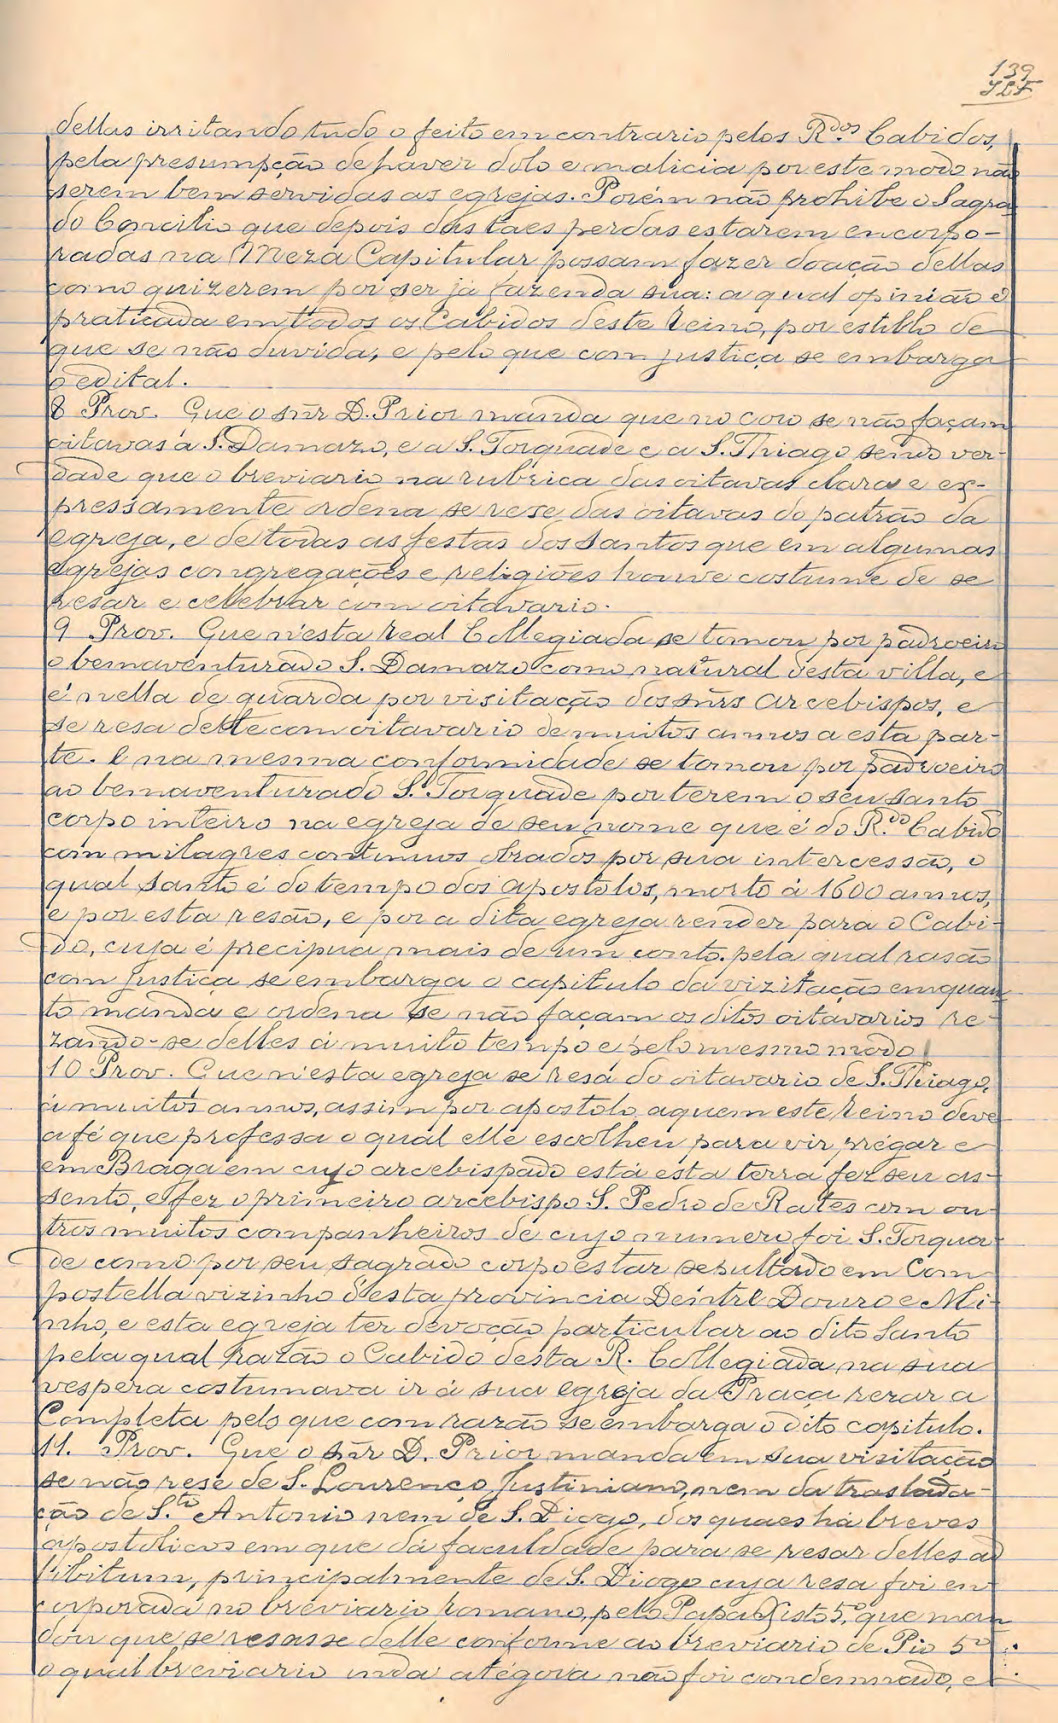 139
dellas irritando tudo o feito em contrario pelos R.dos Cabidos,
pela presumpção de haver dolo e malicia por este modo não
serem bem servidas as egrejas. Porém não prohibe o Sagra
do Concilio que depois das taes perdas estarem encorpo-
radas na Meza Capitular possam fazer doação dellas
como quizerem por ser já fazenda sua: a qual opinião é
praticada em todos os Cabidos deste Reino, por estillo de
que se não duvida, e pelo que com justiça se embarga
o edital.
8 Prov. Que o snr D. Prior manda que no coro se não façam
oitavas a S. Damazo, e a S. Torquade e a S. Thiago sendo ver-
dade que o breviario na rubrica das oitavas clara e ex-
pressamente ordena se rese das oitavas do patrão da
egreja, e de todas as festas dos santos que em algumas
egrejas congregações e religiões houve costume de se
resar e celebrar com oitavario.
9 Prov. Que n'esta Real Collegiada se tomou por padroeiro
o bemaventurado S. Damazo como natural desta villa, e
é nella de guarda por visitação dos snrs Arcebispos, e
se resa delle com oitavario de muitos annos a esta par-
te. E na mesma conformidade se tomou por padroeiro
ao bemaventurado S. Torquade por terem o seu santo
corpo inteiro na egreja de seu nome que é do R.do Cabido
com milagres continuos obrados por sua intercessão, o
qual santo é do tempo dos apostolos, morto á 1600 annos,
e por esta resão, e por a dita egreja render para o Cabi-
do, cuja é precipua mais de um conto. pela qual rasão
com justiça se embarga o capitulo da vizitação emquan
to manda e ordena se não façam os ditos oitavarios re-
zando-se delles á muito tempo e pelo mesmo modo
10 Prov. Que n'esta egreja se resa do oitavario de S. Thiago,
á muitos annos, assim por apostolo aquem este reino deve
a fé que professa o qual elle escolheu para vir prégar e
em Braga em cujo arcebispado está esta terra fez seu as-
sento, e fez o primeiro arcebispo S. Pedro de Rates com ou-
tros muitos companheiros de cujo numero foi S. Torqua-
de como por seu sagrado corpo estar sepultado em Com
postella vizinho d'esta provincia Dentre Douro e Mi-
nho, e esta egreja ter devoção particular ao dito santo
pela qual razão o Cabido desta R. Collegiada na sua
vespera costumava ir á sua egreja da Praça rezar a
Completa pelo que com razão se embarga o dito capitulo.
11. Prov. Que o snr D. Prior manda em sua visitação
se não rese de S. Lourenço Justiniano, nem da traslada-
ção de S.to Antonio nem de S. Diogo, dos quaes há breves
apostolicos em que dá faculdade para se resar delles ad
libitum, principalmente de S. Diogo cuja resa foi en
corporada no breviario romano, pelo Papa Xisto 5.º que man
dou que se resasse delle conforme ao breviario de Pio 5º
o qual breviario inda atégora não foi condemnado, e